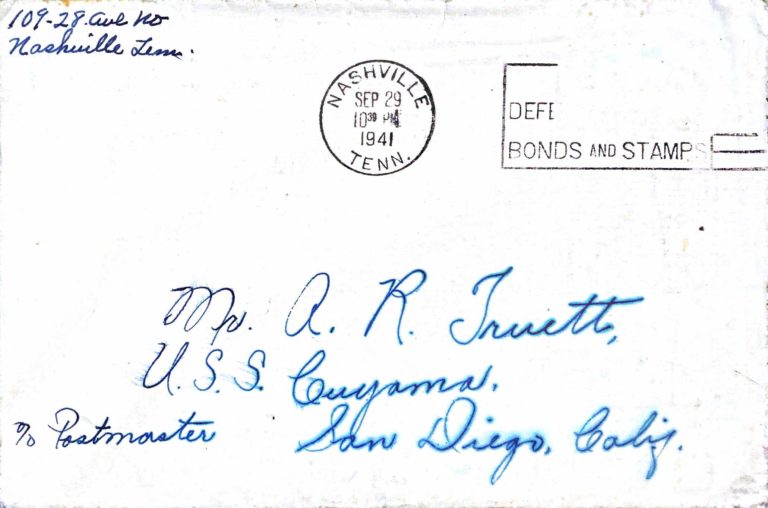 109-28. Ave No
Nashville Tenn.
NASHVILLE
SEP 29
10³⁰ PM
1941
TENN.
DEFE
BONDS AND STAMPS
Mr. A. R. Truett,
U.S.S. Cuyama,
℅ Postmaster San Diego, Calif.